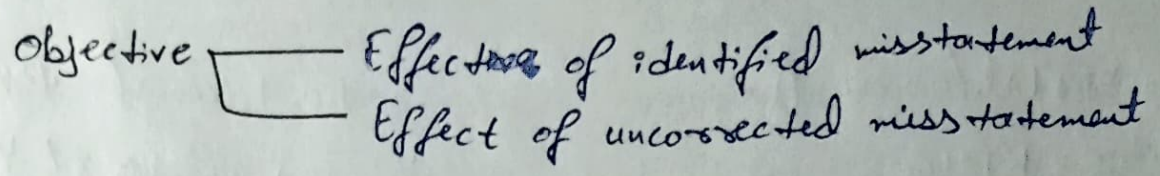 Objective Effect of identified misstatement
Effect of uncorrected misstatement